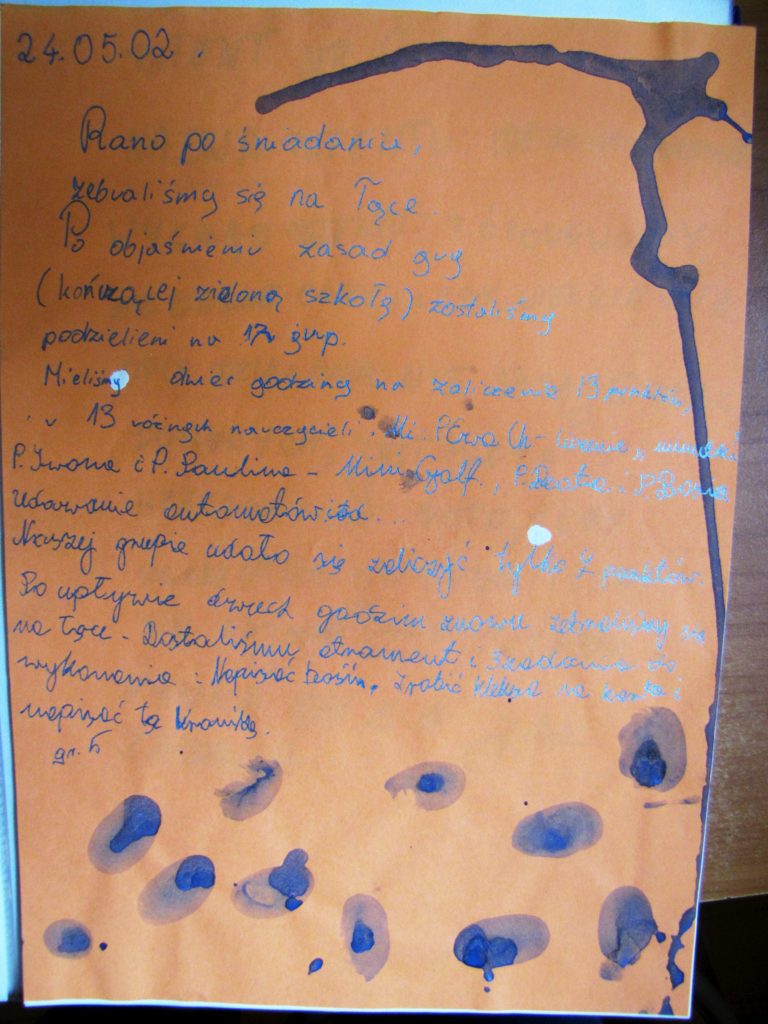 24.05.02.
Rano po śniadaniu,
zebraliśmy się na Tące.
Po objaśnieniu zasad gry
(kończącej zieloną szkołę) zostaliśmy
podzieleni na grup.
Mieliśmy dwie godziny na zaliczenie 13 punktów,
u 13 różnych nauczycieli. P. Ewa Ch-
P. Iwona i P. Paulina - Mini Golf., P. Beata i P.
udawanie automatów itd...
Naszej grupie udało się zaliczyć tylko 7 punktów.
Po upływie dwóch godzin znowu zebraliśmy się
na Tące. Dostaliśmy atrament i 3 zadania do
wykonania: Napisać baśń, zrobić kleksa na kartce i
napisać tę kronikę.
gr. 5